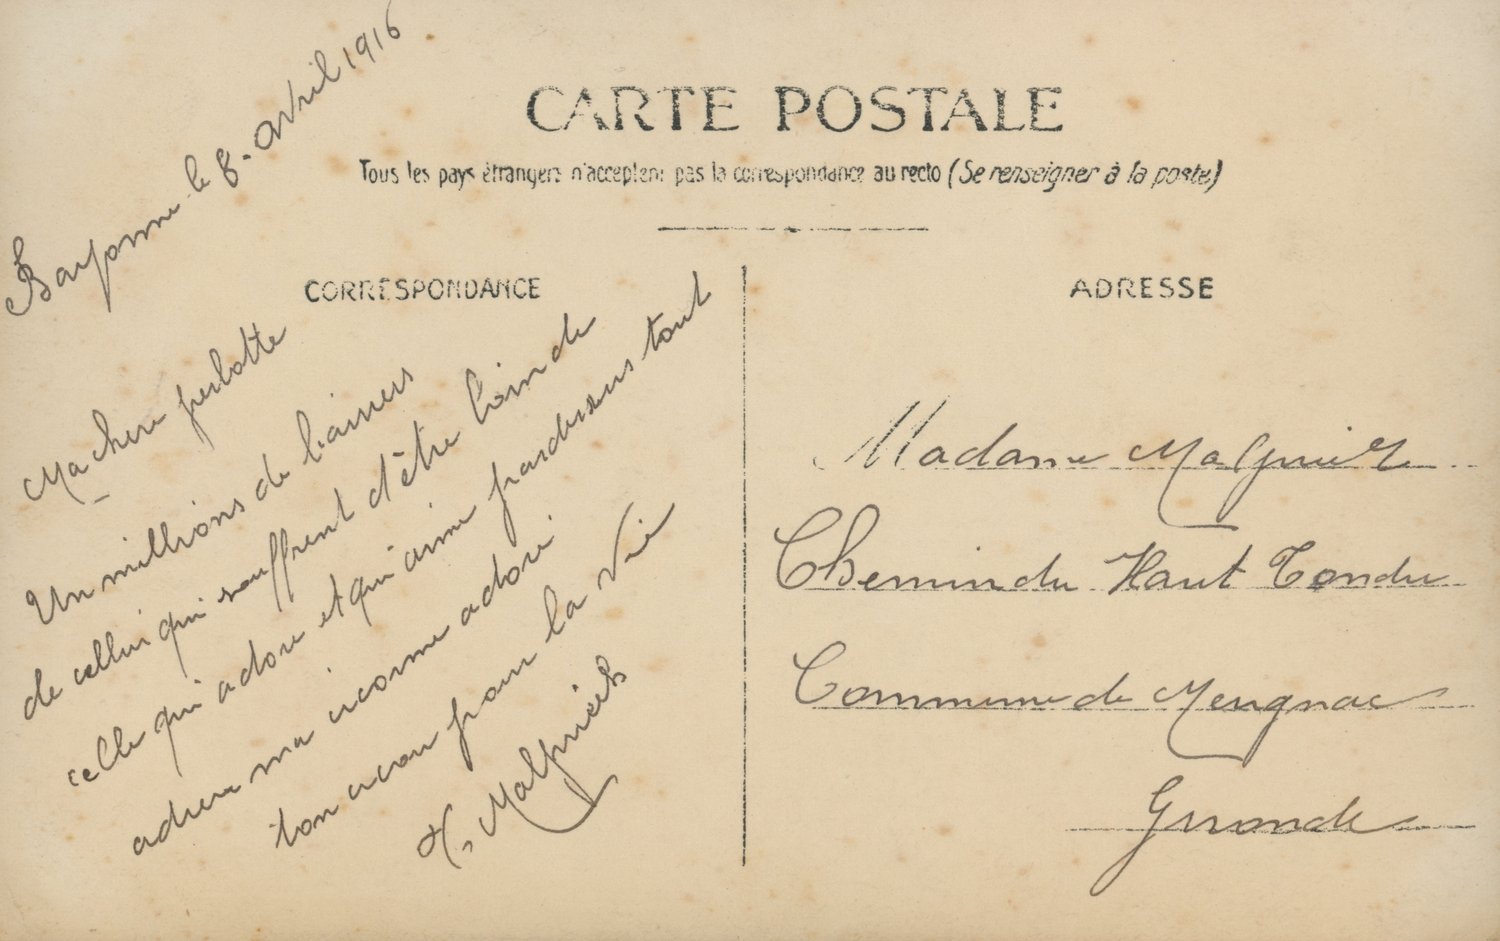 Bayonne le 8 avril 1916
CARTE POSTALE
Tous les pays étrangers n'acceptent pas la correspondance au recto (Se renseigner à la poste)
CORRESPONDANCE
Ma chere
Un millions de baisers
de cellui qui souffrent d'être loin de
celle qui adore et qui aime pardessus tout
adieu ma
ton pour la vie
ADRESSE
Madame
Chemin du Haut Tondu
Commune de Merignac
Gironde